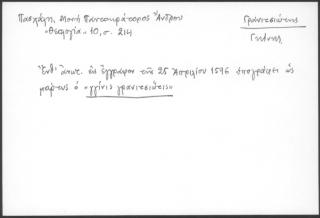 Πασχάλη, Μονή Παντοκράτορος Ἄνδρου
"Θεολογία" 10, σ. 214
Γρανιτσιώτης
Γκίνης
Ἔνθ' ἀνωτ. ἐν ἐγγράφῳ τῆς 25 Ἀπριλίου 1596 ὑπογράφει ὡς
μάρτυς ὁ "γγίνις γρανιτσιότις"